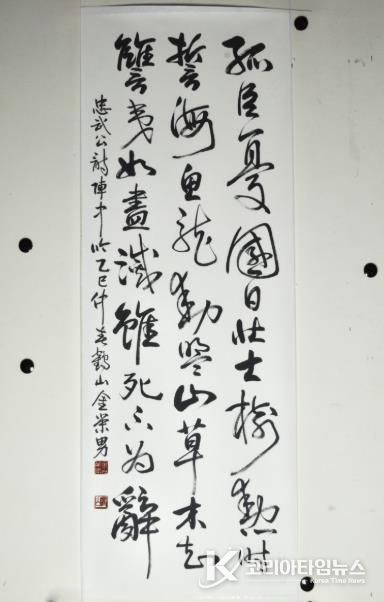 孤臣憂國日壯士樹勳時
誓海魚龍動盟山草木知
讐夷如盡滅雖死不为辭
忠武公詩陣中吟乙巳仲春鶴山金榮男
K 코리아타임뉴스
Korea Time News